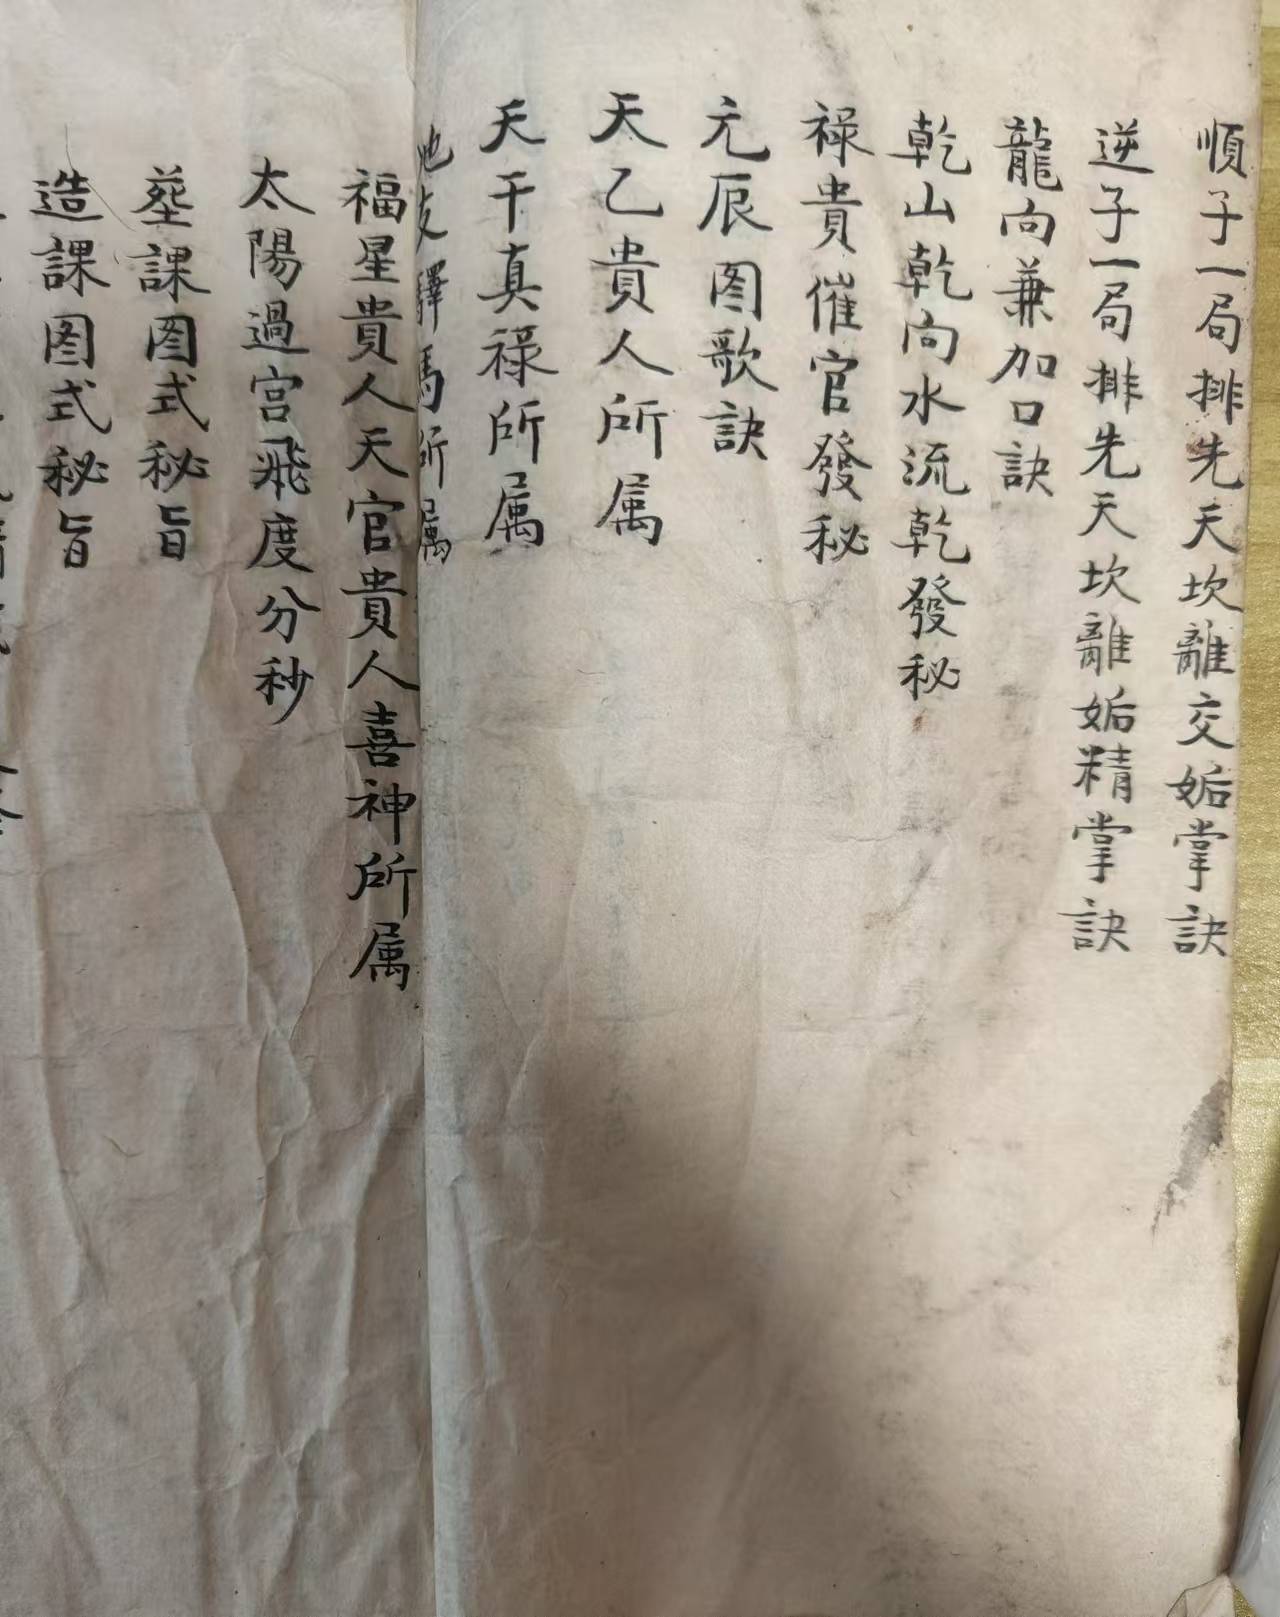 順子一局排先天坎離交姤掌訣
逆子一局排先天坎離姤精掌訣
龍向兼加口訣
乾山乾向水流乾發秘
祿貴催官發秘
元辰图歌訣
天乙貴人所属
天干真祿所属
地支驛馬所属
福星貴人天官貴人喜神所属
太陽過宮飛度分秒
塟課图式秘旨
造課图式秘旨